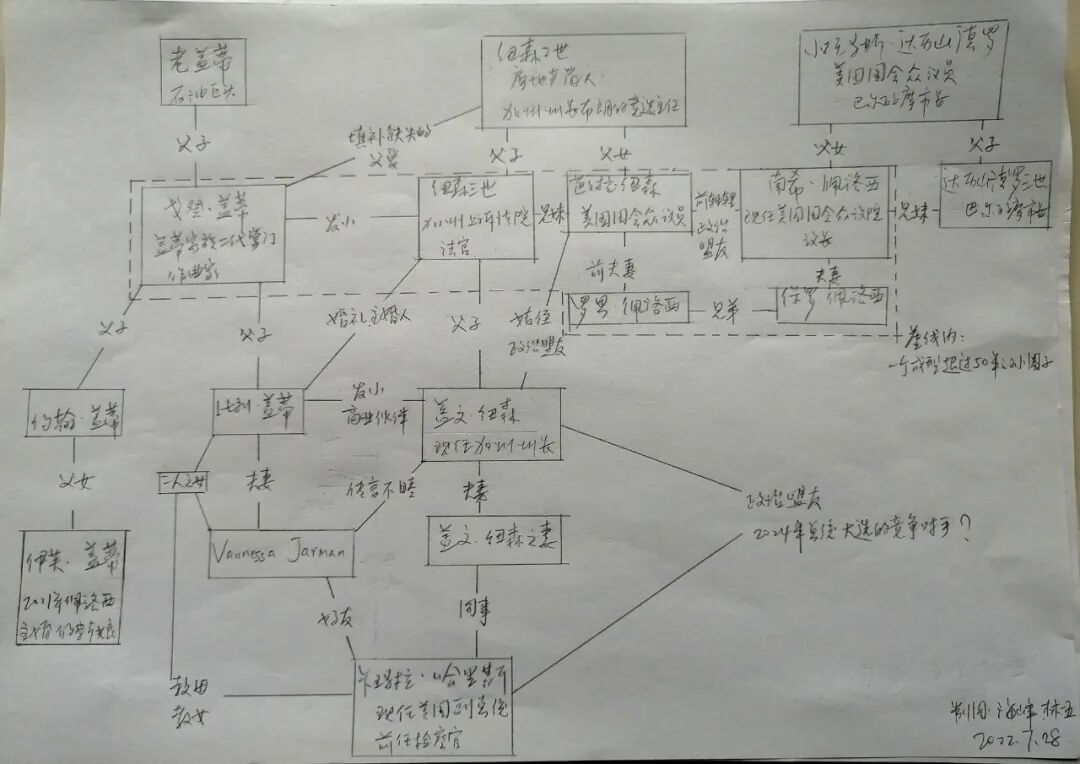 老盖蒂
石油巨头
纽森二世
房地产商人
加州州长布朗的竞选主任
小托马斯·达历山德罗
美国国会众议员
巴尔的摩市长
父子
填补缺失的
父爱
父子
父女
父女
父子
戈登·盖蒂
盖蒂家族二代掌门
作曲家
发小
纽森三世
加州上诉法院
法官
兄妹
芭芭拉·纽森
美国国会众议员
前妯娌
政治
盟友
南希·佩洛西
现任美国国会众议院
议长
兄妹
达历山德罗三世
巴尔的摩市长
前夫妻
夫妻
罗恩·佩洛西
兄弟
保罗·佩洛西
父子
父子
婚礼主婚人
父子
姑侄
政治盟友
虚线内:
一个成型超过50年的小圈子
约翰·盖蒂
比利·盖蒂
发小
商业伙伴
盖文·纽森
现任加州州长
父女
二人之女
夫妻
传言不睦
夫妻
政治盟友
2024年总统大选的竞争对手?
伊芙·盖蒂
2021年佩洛西
主婚的新娘
Vannessa Jarman
盖文·纽森之妻
好友
同事
教母
教女
卡玛拉·哈里斯
现任美国副总统
前任检察官
制图·海伟 林五
2022.7.28